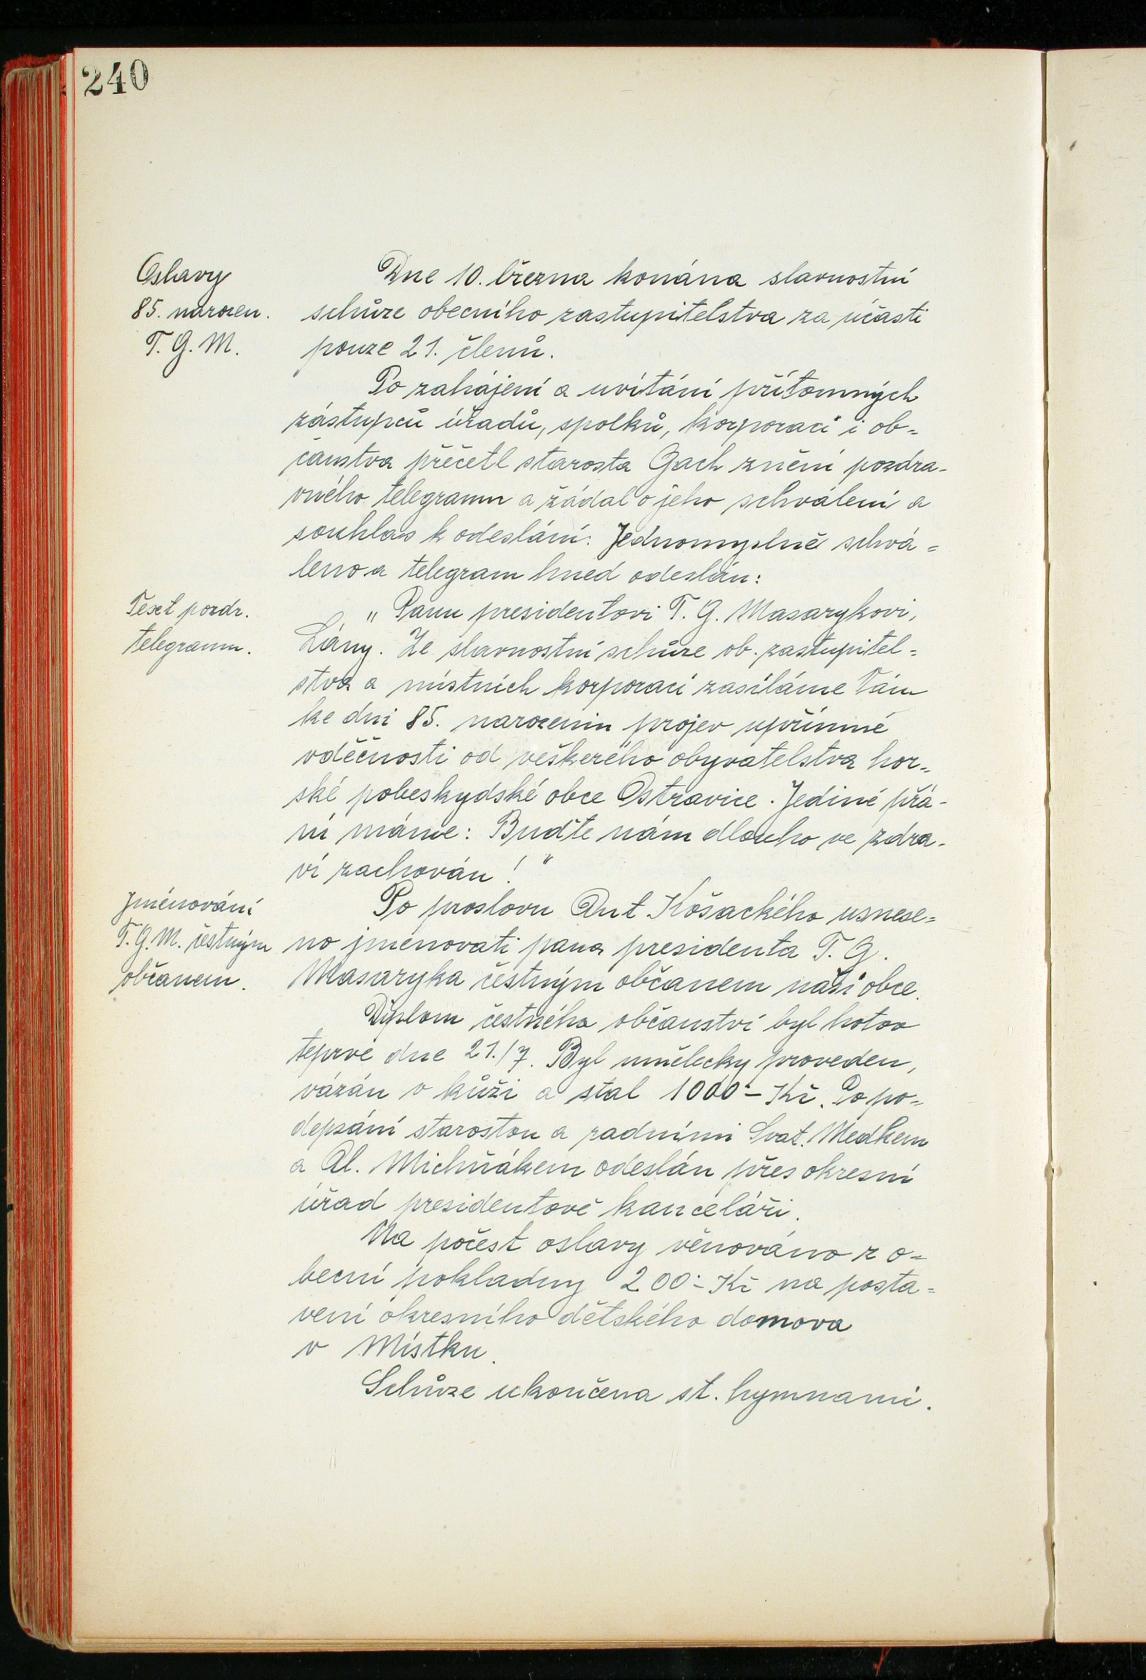 240
Oslavy
85. narozen.
T. G. M.
Dne 10. března konána slavnostní
schůze obecního zastupitelstva za účasti
pouze 21. členů.
Po zahájení a uvítání přítomných
zástupců úřadů, spolků, korporací i ob-
čanstva přečetl starosta Gach znění pozdra-
vného telegramu a žádal o jeho schválení a
souhlas k odeslání. Jednomyslně schvá-
leno a telegram hned odeslán:
Text pozdr.
telegramu.
„Panu presidentovi T. G. Masarykovi,
Lány. Ze slavnostní schůze ob. zastupitel-
stva a místních korporací zasíláme Vám
ke dni 85. narozenin projev upřímné
vděčnosti od veškerého obyvatelstva hor-
ské pobeskydské obce Ostravice. Jediné přá-
ní máme: Buďte nám dlouho ve zdra-
ví zachován!"
Jmenování
T. G. M. čestným
občanem.
Po proslovu Ant. Košackého usnese-
no jmenovati pana presidenta T. G.
Masaryka čestným občanem naší obce.
Diplom čestného občanství byl hotov
teprve dne 21./7. Byl umělecky proveden,
vázán v kůži a stál 1000·- Kč. Po po-
depsání starostou a radními Svat. Medkem
a Al. Michňákem odeslán přes okresní
úřad presidentově kanceláři.
Na počest oslavy věnováno z o-
becní pokladny 200·- Kč na posta-
vení okresního dětského domova
v Místku.
Schůze ukončena st. hymnami.